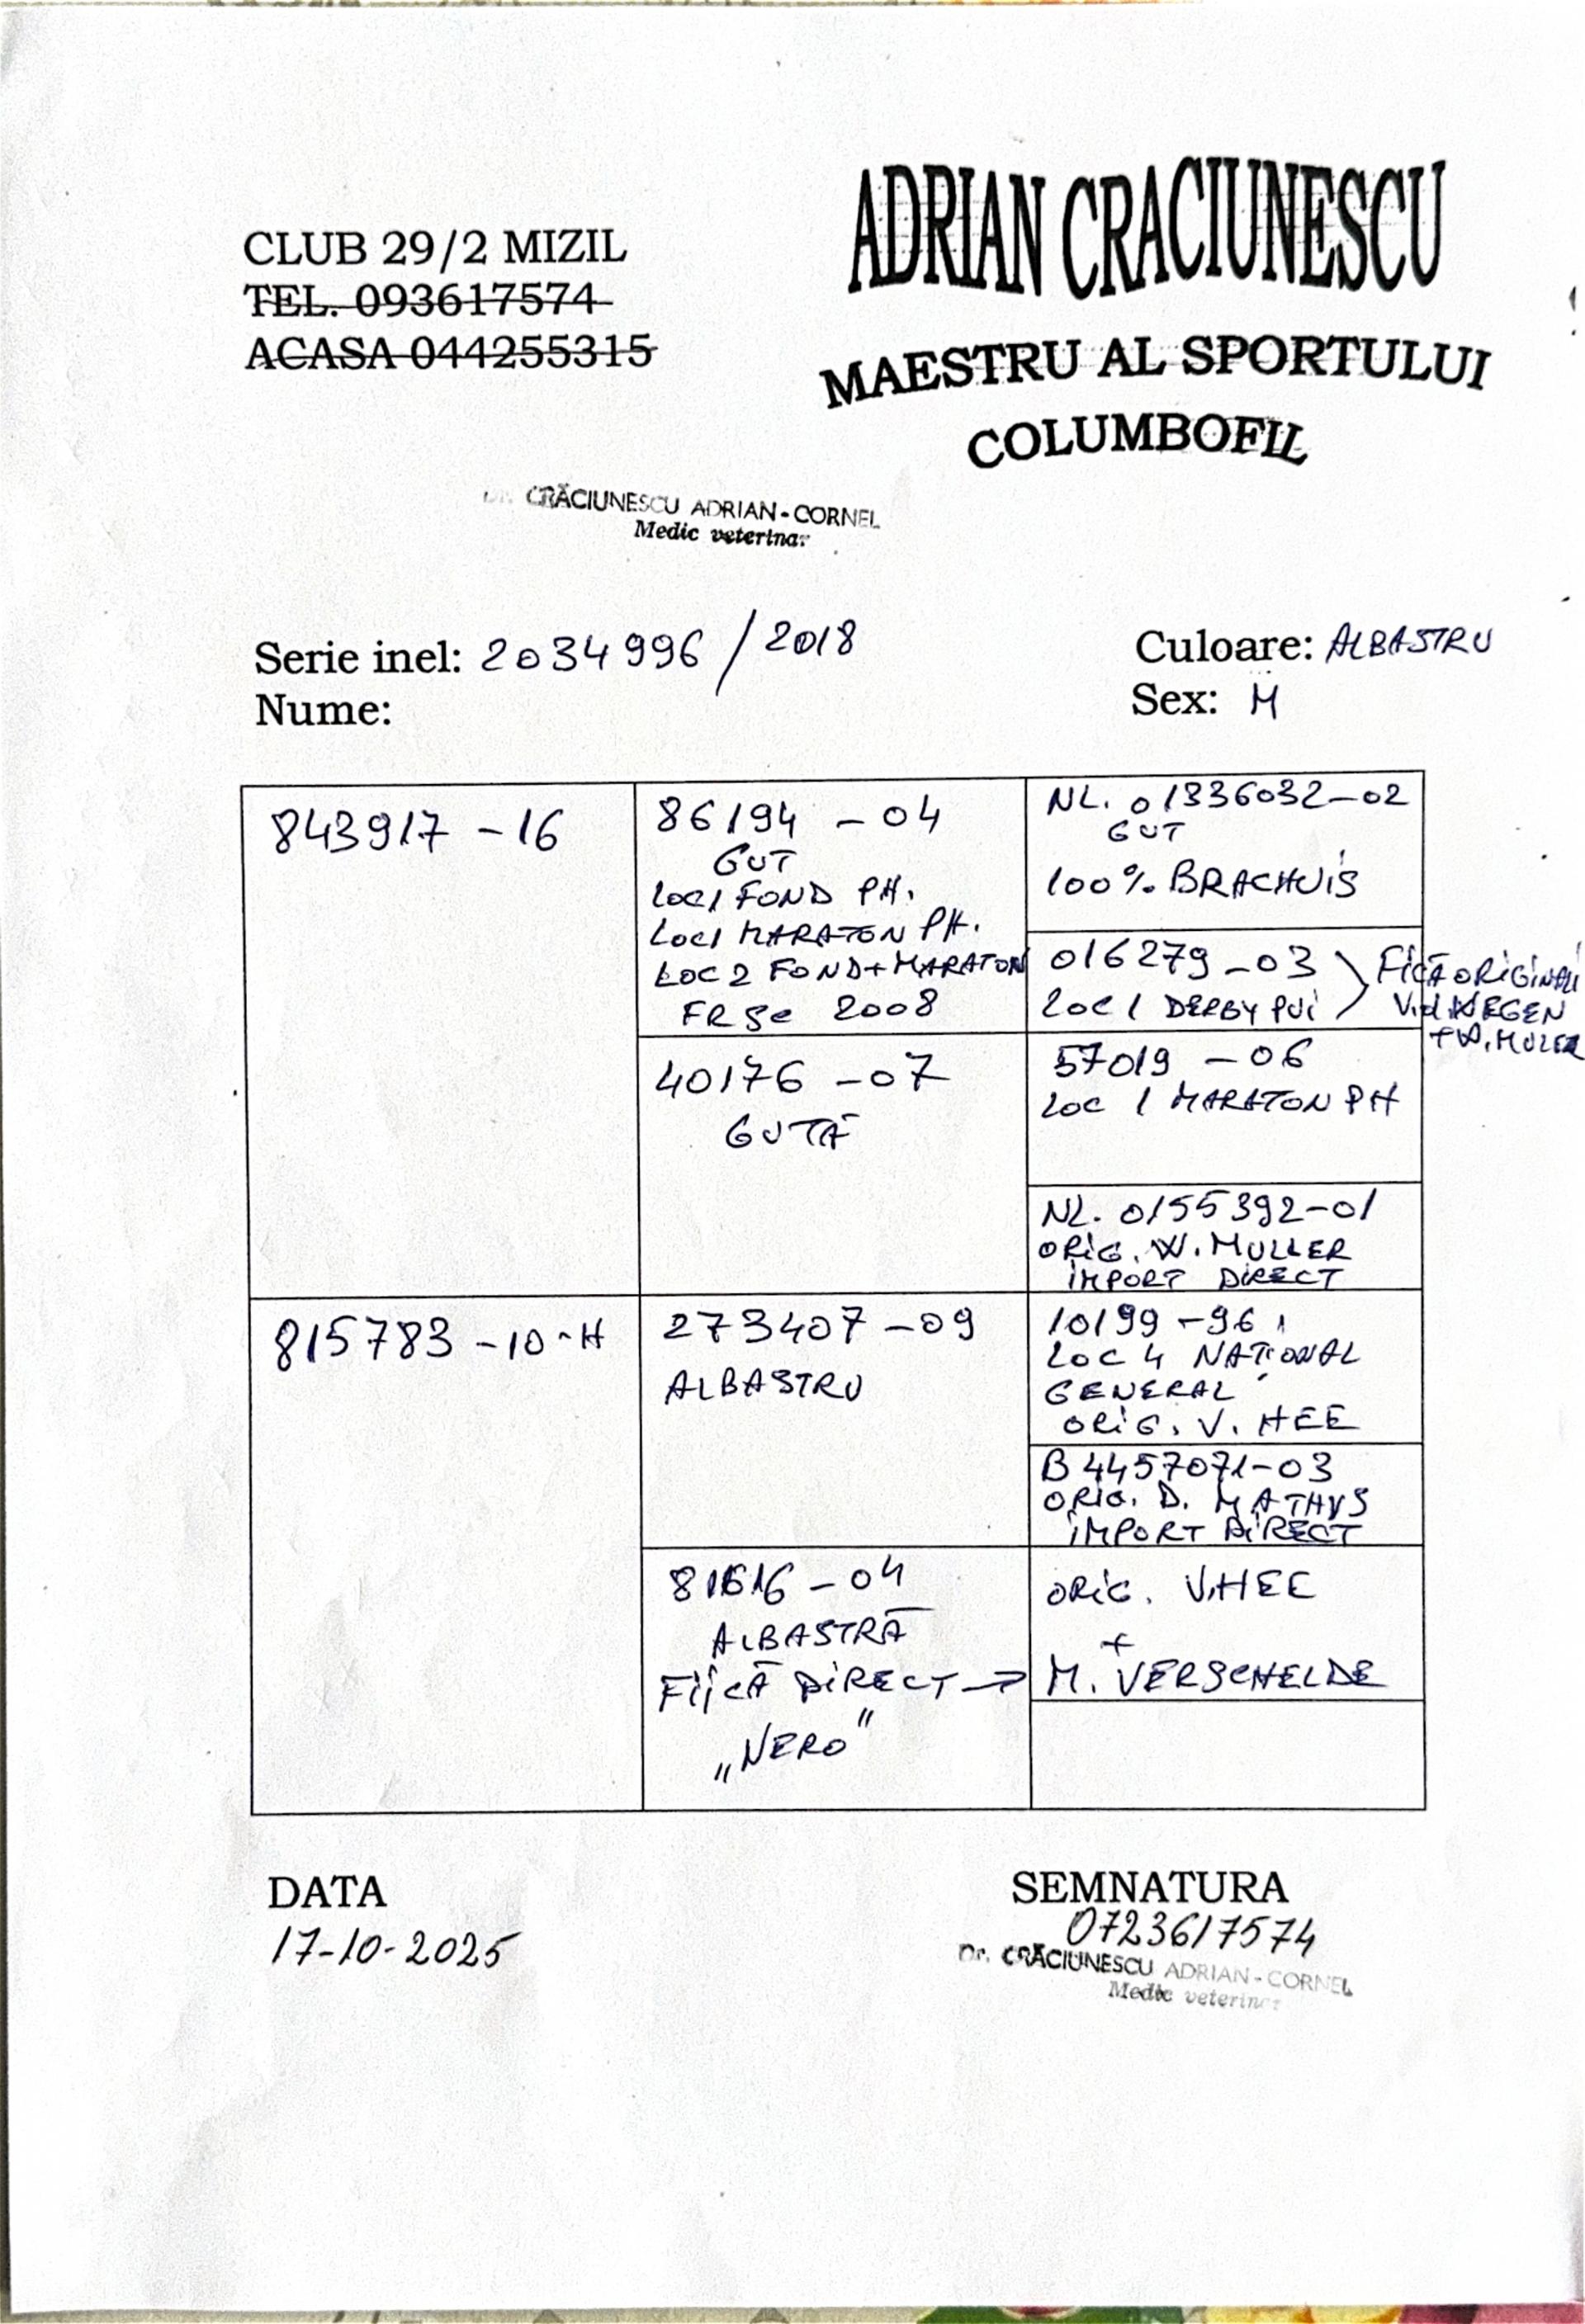 ADRIAN CRACIUNESCU
MAESTRU AL SPORTULUI
COLUMBOFIL
CLUB 29/2 MIZIL
TEL. 093617574
ACASA 044255315
Dr. CRĂCIUNESCU ADRIAN-CORNEL
Medic veterinar
Serie inel: 2034996 / 2018
Culoare: ALBASTRU
Nume:
Sex: M
843917 - 16
86194 - 04
GUT
LOC 1 FOND PH.
LOC 1 MARATON PH.
LOC 2 FOND+MARATON
FRSC 2008
NL. 01336032-02
GUT
100% BRACHUIS
016279-03
LOC 1 DERBY PUI
FIICĂ ORIGINALI
V.d. WEGEN
+ W. MULLER
40176 - 07
GUTĂ
57019 - 06
LOC 1 MARATON PH
NL. 0155392-01
ORIG. W. MULLER
IMPORT DIRECT
815783 - 10 - H
273407 - 09
ALBASTRU
10199 - 96
LOC 4 NATIONAL
GENERAL
ORIG. V. HEE
B 4457071-03
ORIG. D. MATHYS
IMPORT DIRECT
- 04
ALBASTRĂ
FIICĂ DIRECT →
„NERO”
ORIG. V.HEE
+
M. VERSCHELDE
DATA
17-10-2025
SEMNATURA
0723617574
Dr. CRĂCIUNESCU ADRIAN-CORNEL
Medic veterinar